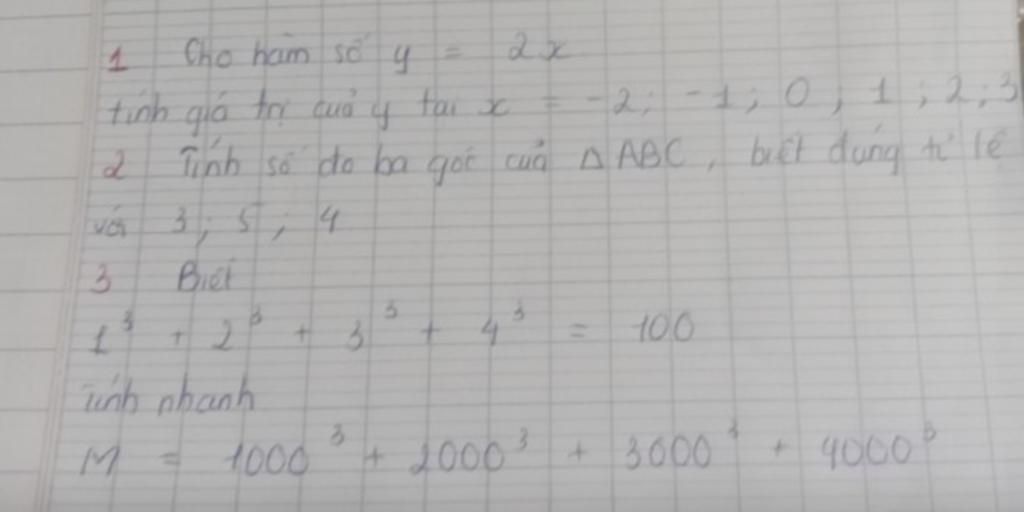 1 Cho hàm số y = 2x
tính giá trị cuả y tai x = -2; -1; 0; 1; 2; 3
2 Tính số đo ba goć cuả Δ ABC, biết chúng tỉ lệ
với 3; 5; 4
3 Biết
1³ + 2³ + 3³ + 4³ = 100
Tính nhanh
M = 1000³ + 2000³ + 3000³ + 4000³